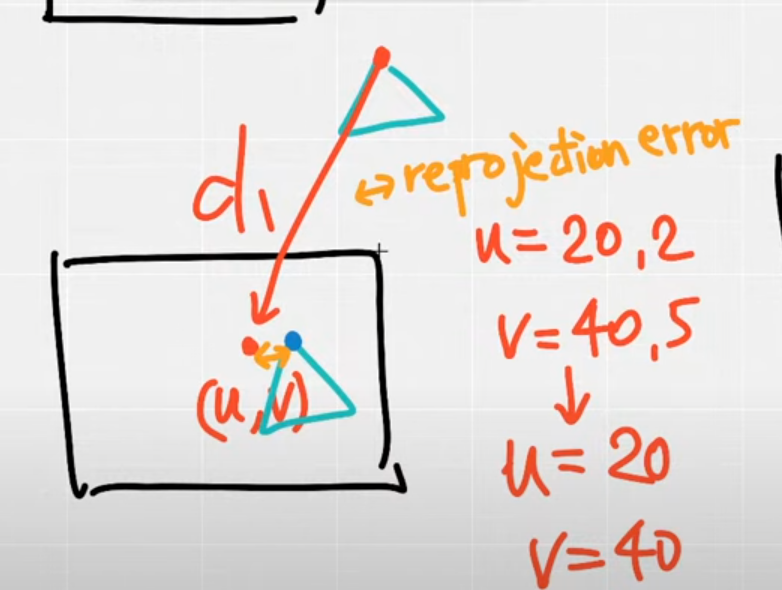 d1
↔ reprojection error
u = 20,2
v = 40,5
↓
(u,v)
u = 20
v = 40